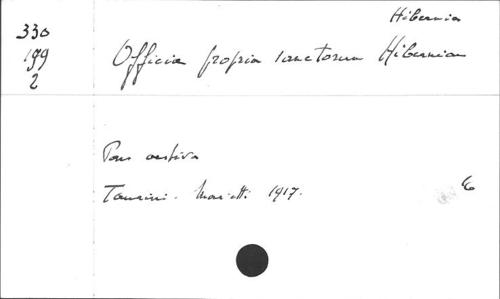 Hibernia
330
199
2
Officia propria sanctorum Hiberniae
Pars aestiva
Taurini. Marietti 1917.